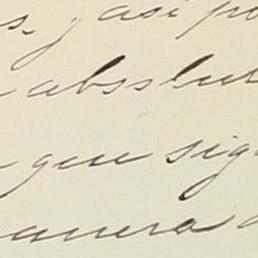 s, y así po
absolut
que sig
anera d